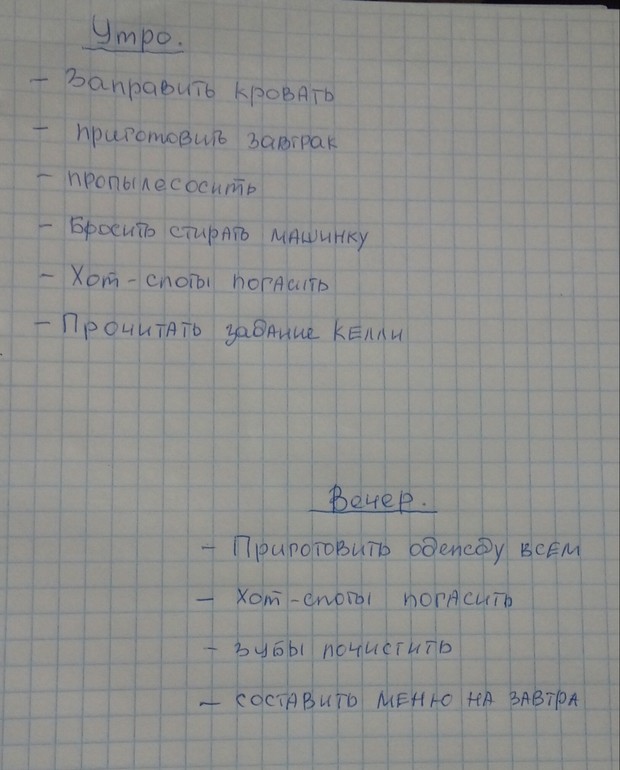 Утро.
- Заправить кровать
- приготовить завтрак
- пропылесосить
- Бросить стирать машинку
- Хот-споты погасить
- Прочитать задание Келли
Вечер.
- Приготовить одежду всем
- Хот-споты погасить
- Зубы почистить
- составить меню на завтра